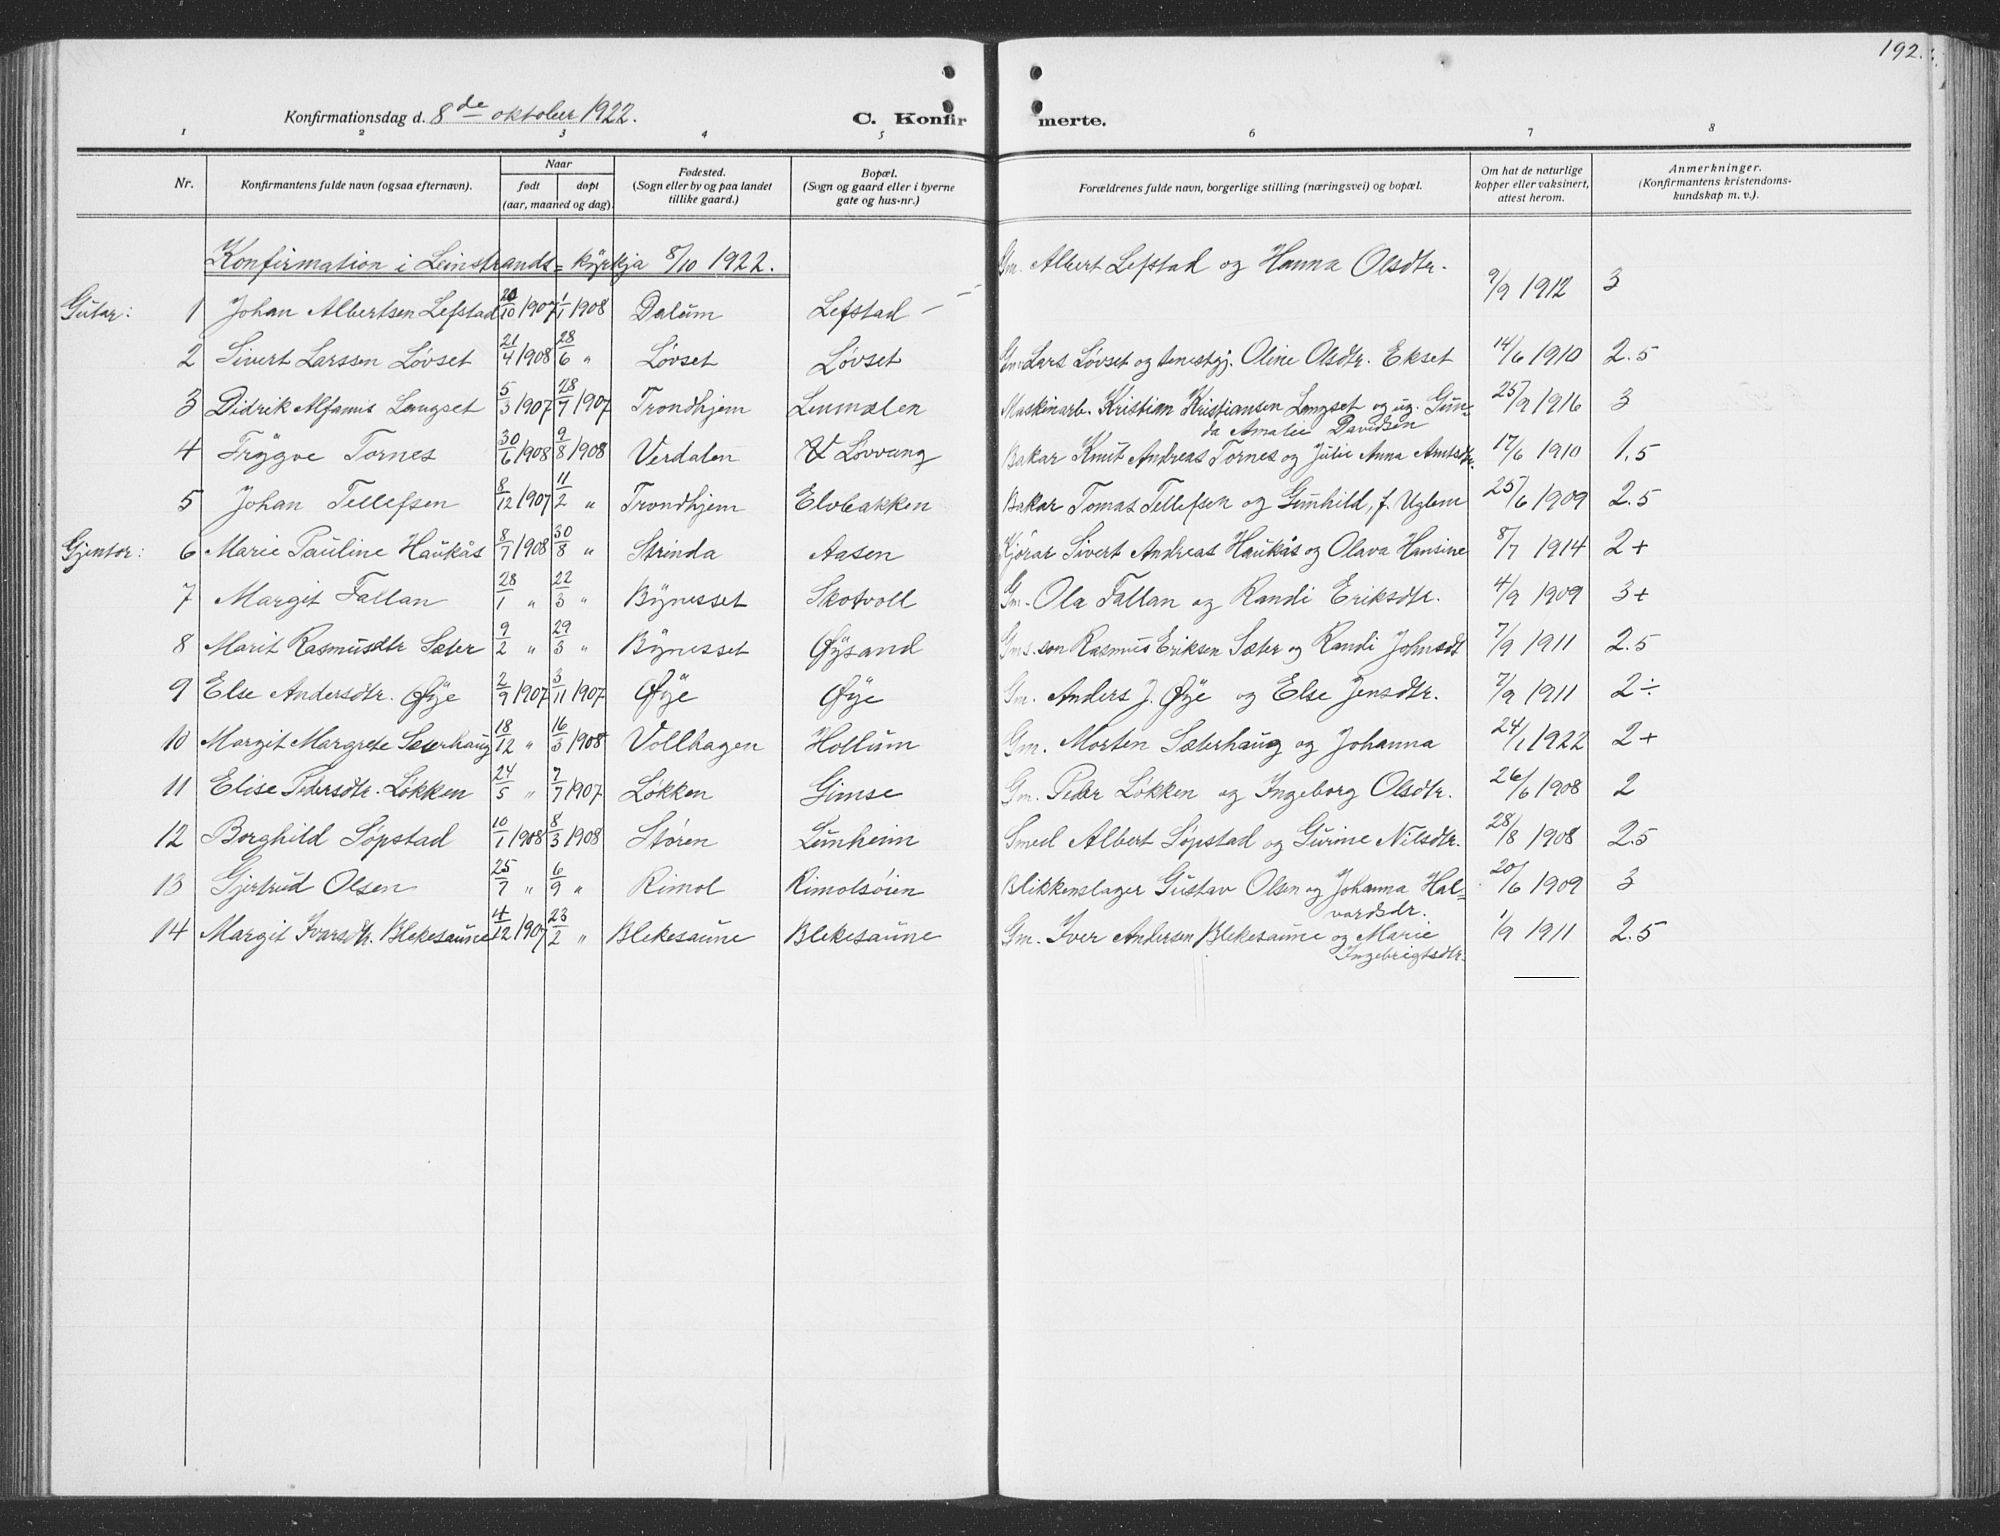 192.
Konfirmationsdag d. 8de oktober 1922.
C. Konfirmerte.
1 2 3 4 5 6 7 8
Nr.
Konfirmantens fulde navn (ogsaa efternavn).
Naar
født døpt
(aar, maaned og dag).
Fødested.
(Sogn eller by og paa landet
tillike gaard.)
Bopæl.
(Sogn og gaard eller i byerne
gate og hus-nr.)
Forældrenes fulde navn, borgerlige stilling (næringsvei) og bopæl.
Om hat de naturlige
kopper eller vaksinert,
attest herom.
Anmerkninger.
(Konfirmantens kristendoms-
kundskap m. v.)
Konfirmation i Leinstrands- kyrkja 8/10 1922.
Gutar: 1 Johan Albertsen Lefstad 20/10 1907 1/1 1908 Dalum Lefstad Gm. Albert Lefstad og Hanna Olsdtr. 9/9 1912 3
2 Sivert Larssen Løvset 21/4 1908 28/6 " Løvset Løvset Gm. Lars Løvset og tenestgj. Oline Olsdtr. Ekset 14/6 1910 2.5
3 Didrik Alfamis Langset 5/3 1907 28/7 1907 Trondhjem Maskinarb. Kristian Kristiansen Langset og ug. Gun-
da Amalie Davidsen 25/9 1916 3
4 Trygve Tornes 30/6 1908 9/8 1908 Verdalen Løvvang Bakar Knut Andreas Tornes og Julie Anna Arntsdtr. 17/6 1910 1.5
5 Johan Tellefsen 8/12 1907 11/2 " Trondhjem Elvebakken Bakar Tomas Tellefsen og Gunhild, f. Uglem 25/6 1909 2.5
Gjentor: 6 Marie Pauline Haukås 8/7 1908 30/8 " Strinda Aasen Kjørar Sivert Andreas Haukås og Olava Hansine 8/7 1914 2+
7 Margit Fallan 28/1 " 22/3 " Bynesset Skotvoll Gm. Ola Fallan og Randi Eriksdtr. 4/9 1909 3+
8 Marit Rasmusdtr Sæter 9/2 " 29/3 " Bynesset Øysand Gms. son Rasmus Eriksen Sæter og Randi Johnsdt 7/9 1911 2.5
9 Else Andersdtr. Øye 2/9 1907 3/11 1907 Øye Øye Gm. Anders J. Øye og Else Jensdtr. 7/9 1911 2÷
10 Margit Margrete Sæterhaug 18/12 " 16/3 1908 Vollhagen Hollum Gm. Morten Sæterhaug og Johanna 24/1 1922 2+
11 Elise Pedersdtr. Løkken 24/5 " 7/7 1907 Løkken Gimse Gm. Peder Løkken og Ingeborg Olsdtr. 26/6 1908 2
12 Borghild Søpstad 10/1 1908 8/3 1908 Støren Smed Albert Søpstad og Gurine Nilsdtr. 28/8 1908 2.5
13 Gjertrud Olsen 25/7 " 6/9 " Rimol Rimolsøien Blikkenslager Gustav Olsen og Johanna Hal-
vardsdr. 20/6 1909 3
14 Margit Ivarsdtr. Blekesaune 4/12 1907 23/2 " Blekesaune Blekesaune Gm. Iver Andersen Blekesaune og Marie
Ingebrigtsdtr. 1/9 1911 2.5